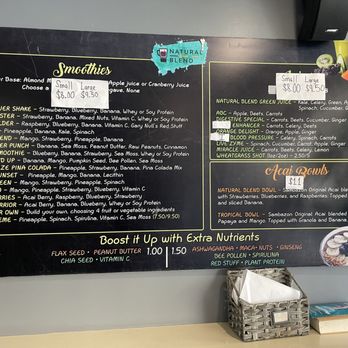 NATURAL
BLEND
Smoothies
Base: Almond
Apple juice or Cranberry Juice
Choose a
Agave, None
Small Large
$8.00 $9.50
SHAKE - Strawberry, Banana, Blueberry, Whey or Soy Protein
Strawberry, Banana, Mixed Nuts, Vitamin C, Whey or Soy Protein
Raspberry, Blueberry, Banana, Vitamin C, Gary Null's Red Stuff
Pineapple, Banana, Kale, Spinach
Mango, Strawberry, Pineapple, Banana
PUNCH - Banana, Sea Moss, Peanut Butter, Raw Peanuts, Cinnamon
Blueberry, Banana, Oats, Sea Moss, Whey or Soy Protein
UP - Banana, Mango, Pumpkin Seed, Bee Pollen, Sea Moss
PINA COLADA - Pineapple, Strawberry, Banana, Pina Colada Mix
Pineapple, Mango, Banana, Lecithin
Mango, Strawberry, Pineapple, Spinach
Mango, Pineapple, Strawberry, Blueberry, Vitamin C
Acai Berry, Raspberry, Blueberry, Strawberry
Acai Berry, Banana, Blueberry, Whey or Soy Protein
OWN - Build your own, choosing 4 fruit or vegetable ingredients
Pineapple, Spinach, Spirulina, Vitamin C, Sea Moss (7.50/9.50)
Small Large
$8.00 $9.50
NATURAL BLEND GREEN JUICE - Kale, Celery, Green
Spinach
ABC - Apple, Beets, Carrot
DIGESTIVE SPECIAL - Carrots, Beets, Cucumber, Ginger
ENHANCER - Carrots, Celery, Beets
ORANGE DELIGHT - Orange, Apple, Ginger
BLOOD PRESSURE - Celery, Spinach, Carrots
LIVE ZYME - Spinach, Cucumber, Carrot, Apple, Ginger
MIRACLE JUICE - Carrots, Beets, Celery, Lemon
WHEATGRASS SHOT (1oz/2oz) - 2.50/5
Acai Bowls
$11
NATURAL BLEND BOWL - Sambazon Original Acai blended
with Strawberries, Blueberries, and Raspberries. Topped
and sliced Banana.
TROPICAL BOWL - Sambazon Original Acai blended
Papaya and Mango. Topped with Granola and Banana
Boost it Up with Extra Nutrients
FLAX SEED • PEANUT BUTTER 1.00 | 1.50 ASHWAGANDHA • MACA • NUTS • GINSENG
CHIA SEED • VITAMIN C
BEE POLLEN • SPIRULINA
RED STUFF • PLANT PROTEIN